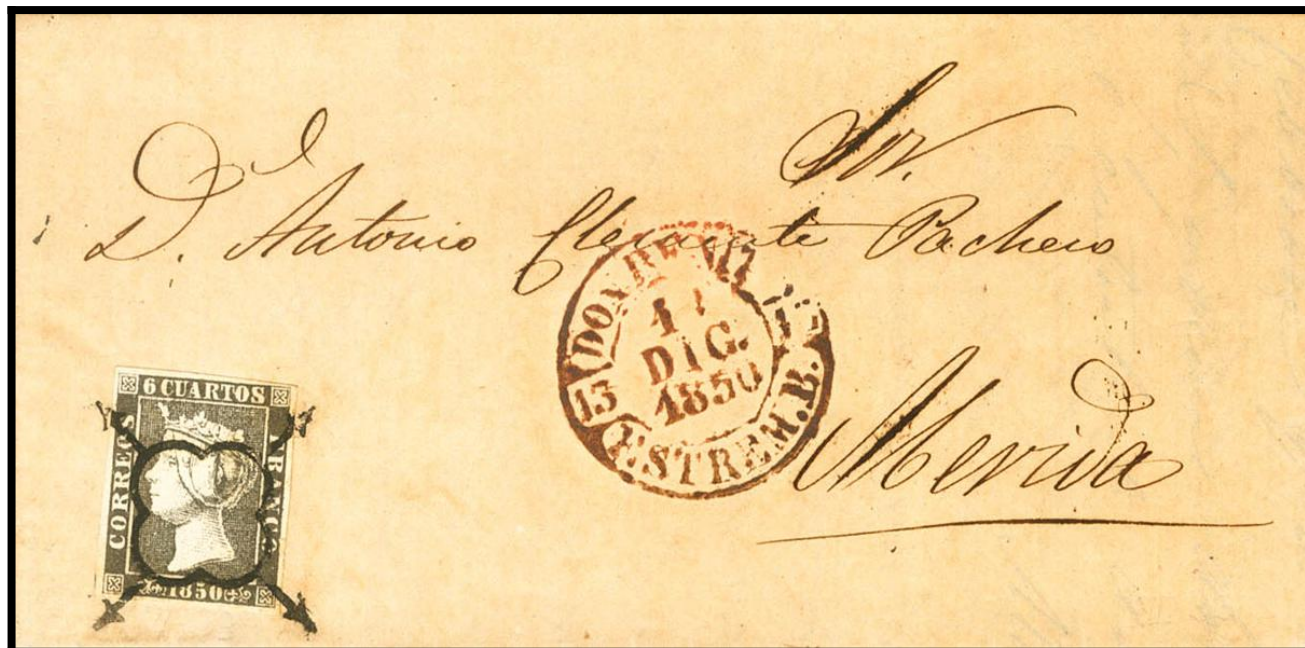 Sor.
D. Antonio Clemente Pacheco
Merida
DON BENIT
DIC.
1850
13
ESTREM. B.
6 CUARTOS
CORREOS
FRANCO
1850